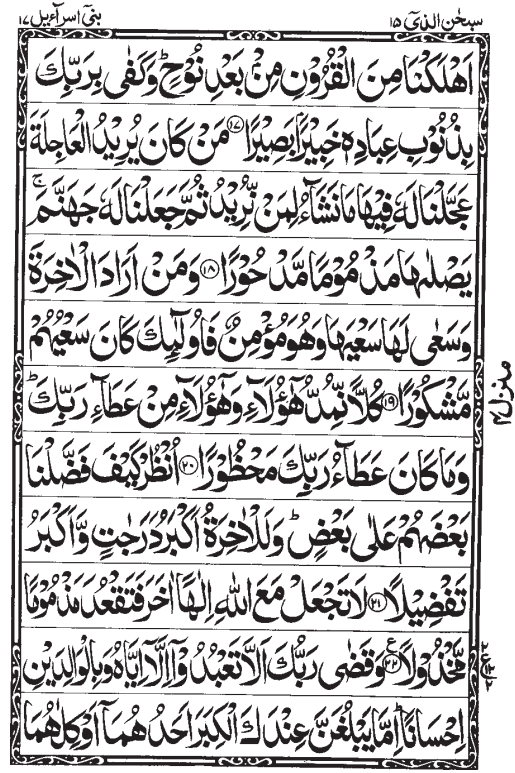 سبحٰن الذیٓ ۱۵
بنیٓ اسرآءیل ۱۷
اَهْلَكْنَا مِنَ الْقُرُوْنِ مِنْۢ بَعْدِ نُوْحٍ ؕ وَكَفٰى بِرَبِّكَ
بِذُنُوْبِ عِبَادِهٖ خَبِيْرًۢا بَصِيْرًا ۱۷ مَنْ كَانَ يُرِيْدُ الْعَاجِلَةَ
عَجَّلْنَا لَهٗ فِيْهَا مَا نَشَآءُ لِمَنْ نُّرِيْدُ ثُمَّ جَعَلْنَا لَهٗ جَهَنَّمَ ۚ
يَصْلٰىهَا مَذْمُوْمًا مَّدْحُوْرًا ۱۸ وَمَنْ اَرَادَ الْاٰخِرَةَ
وَسَعٰى لَهَا سَعْيَهَا وَهُوَ مُؤْمِنٌ فَاُولٰٓئِكَ كَانَ سَعْيُهُمْ
مَّشْكُوْرًا ۱۹ كُلًّا نُّمِدُّ هٰٓؤُلَآءِ وَهٰٓؤُلَآءِ مِنْ عَطَآءِ رَبِّكَ ؕ
وَمَا كَانَ عَطَآءُ رَبِّكَ مَحْظُوْرًا ۲۰ اُنْظُرْ كَيْفَ فَضَّلْنَا
بَعْضَهُمْ عَلٰى بَعْضٍ ؕ وَلَلْاٰخِرَةُ اَكْبَرُ دَرَجٰتٍ وَّاَكْبَرُ
تَفْضِيْلًا ۲۱ لَا تَجْعَلْ مَعَ اللّٰهِ اِلٰهًا اٰخَرَ فَتَقْعُدَ مَذْمُوْمًا
مَّخْذُوْلًا ۲۲ ع وَقَضٰى رَبُّكَ اَلَّا تَعْبُدُوْٓا اِلَّآ اِيَّاهُ وَبِالْوَالِدَيْنِ
اِحْسَانًا ؕ اِمَّا يَبْلُغَنَّ عِنْدَكَ الْكِبَرَ اَحَدُهُمَآ اَوْ كِلٰهُمَا
منزل ۴